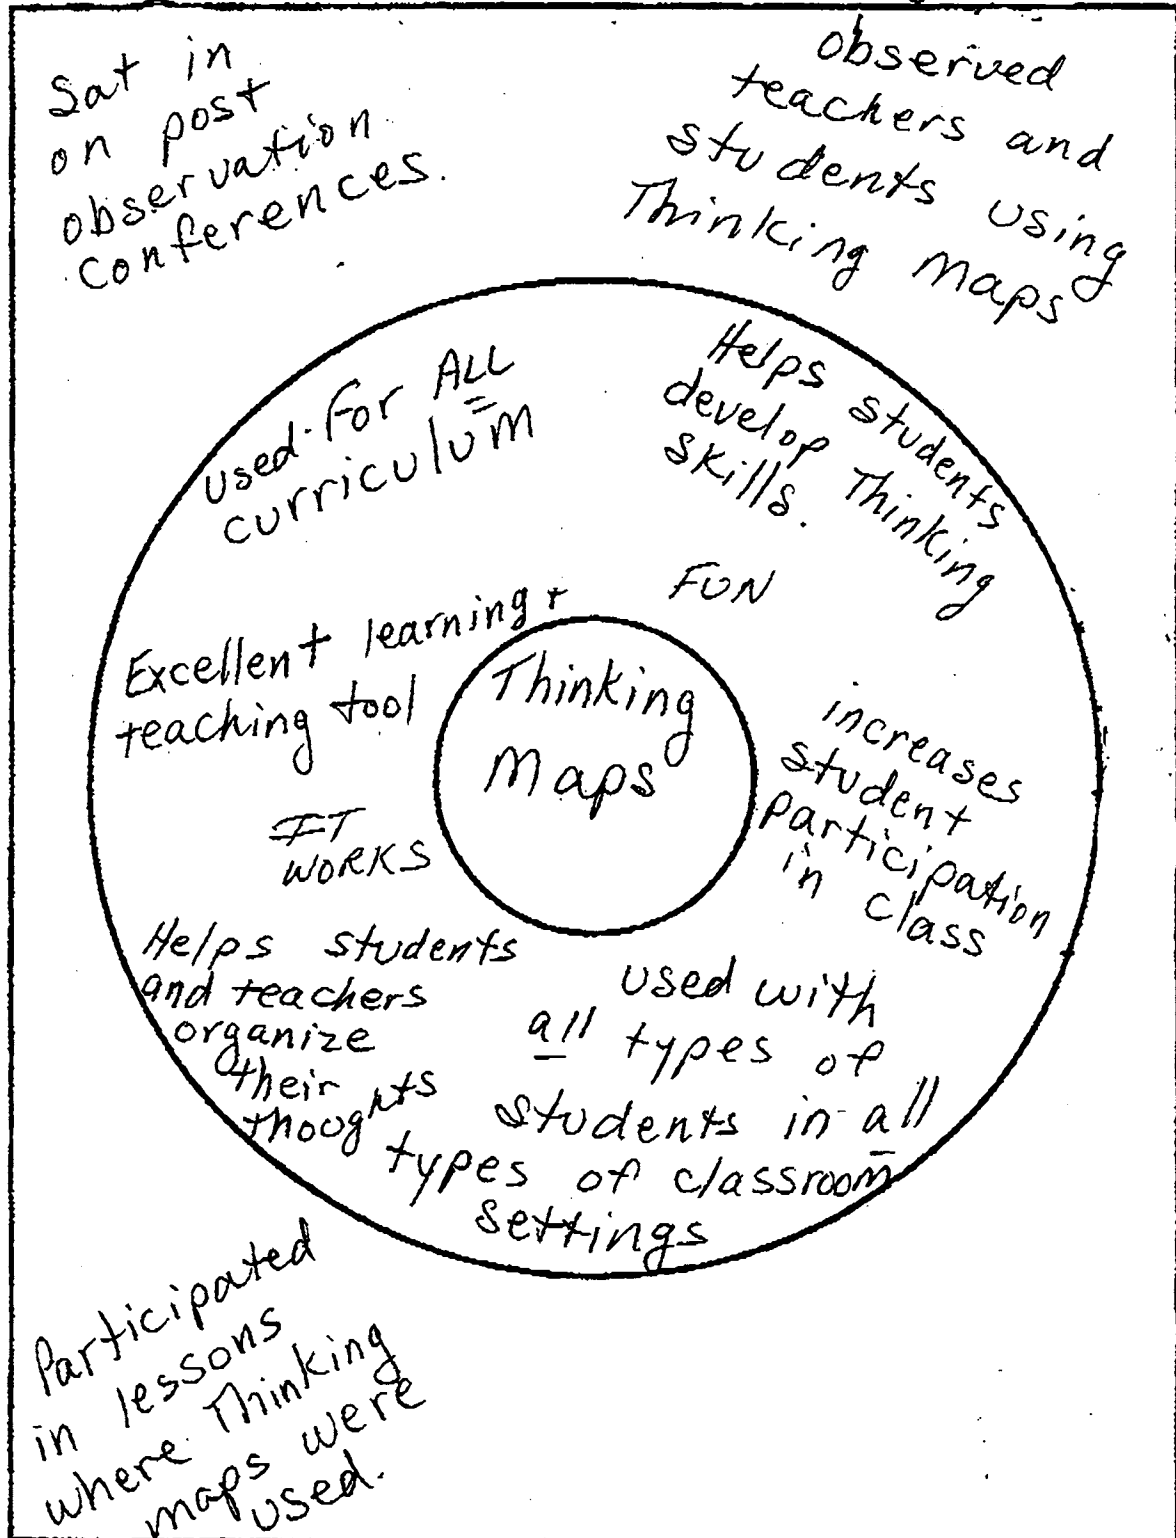 Sat in
on post
observation
conferences.
observed
teachers and
students using
Thinking Maps
used for ALL
curriculum
Helps students
develop Thinking
skills.
FUN
Excellent learning +
teaching tool
Thinking
Maps
increases
student
participation
in class
IT
WORKS
Helps students
and teachers
organize
their
thoughts
used with
all types of
students in all
types of classroom
settings
Participated
in lessons
where Thinking
maps were
used.